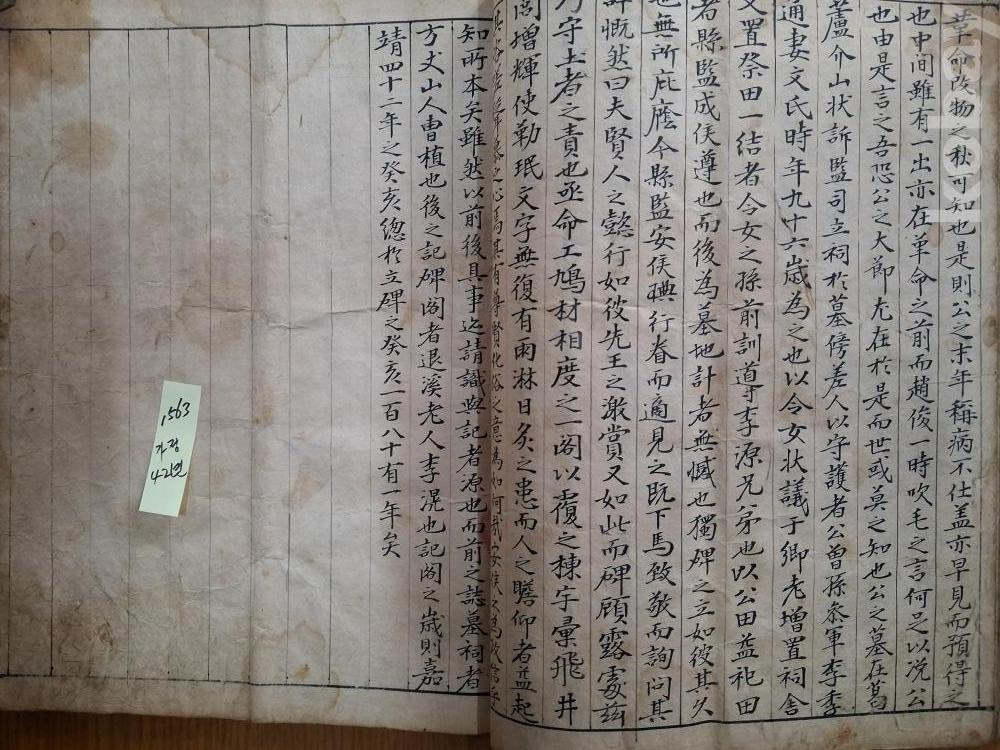 革命改物之秋可知也是則公之末年稱病不仕盖亦早見而預得之
也中間雖有一出亦在革命之前而趙俊一時吹毛之言何足以浼公
也由是言之吾恐公之大節尤在於是而世或莫之知也公之墓在葛
蘆介山状訴監司立祠於墓傍差人以守護者公曾孫叅軍李季
通妻文氏時年九十六歲為之也以今女状議于鄉老增置祠舍
又置祭田一結者令女之孫前訓導李源兄弟也以公田益祀田
者縣監成侯遵也而後為墓地計者無憾也獨碑之立如彼其久
也無所庇廕今縣監安侯行眷而適見之既下馬致敬而詢問其
詳慨然曰夫賢人之懿行如彼先王之激賞又如此而碑顧露處茲
乃守土者之責也亟命工鳩材相度之一閣以覆之棟宇翬飛井
閭增輝使勒珉文字無復有雨淋日炙之患而人之瞻仰者益起
之心焉其有尊賢化俗之意為如何哉安侯之為政
知所本矣雖然以前後具事迄請識與記者源也而前之誌墓祠者
方丈山人曺植也後之記碑閣者退溪老人李滉也記閣之歲則嘉
靖四十二年之癸亥揔於立碑之癸亥一百八十有一年矣
1563
가정
42년